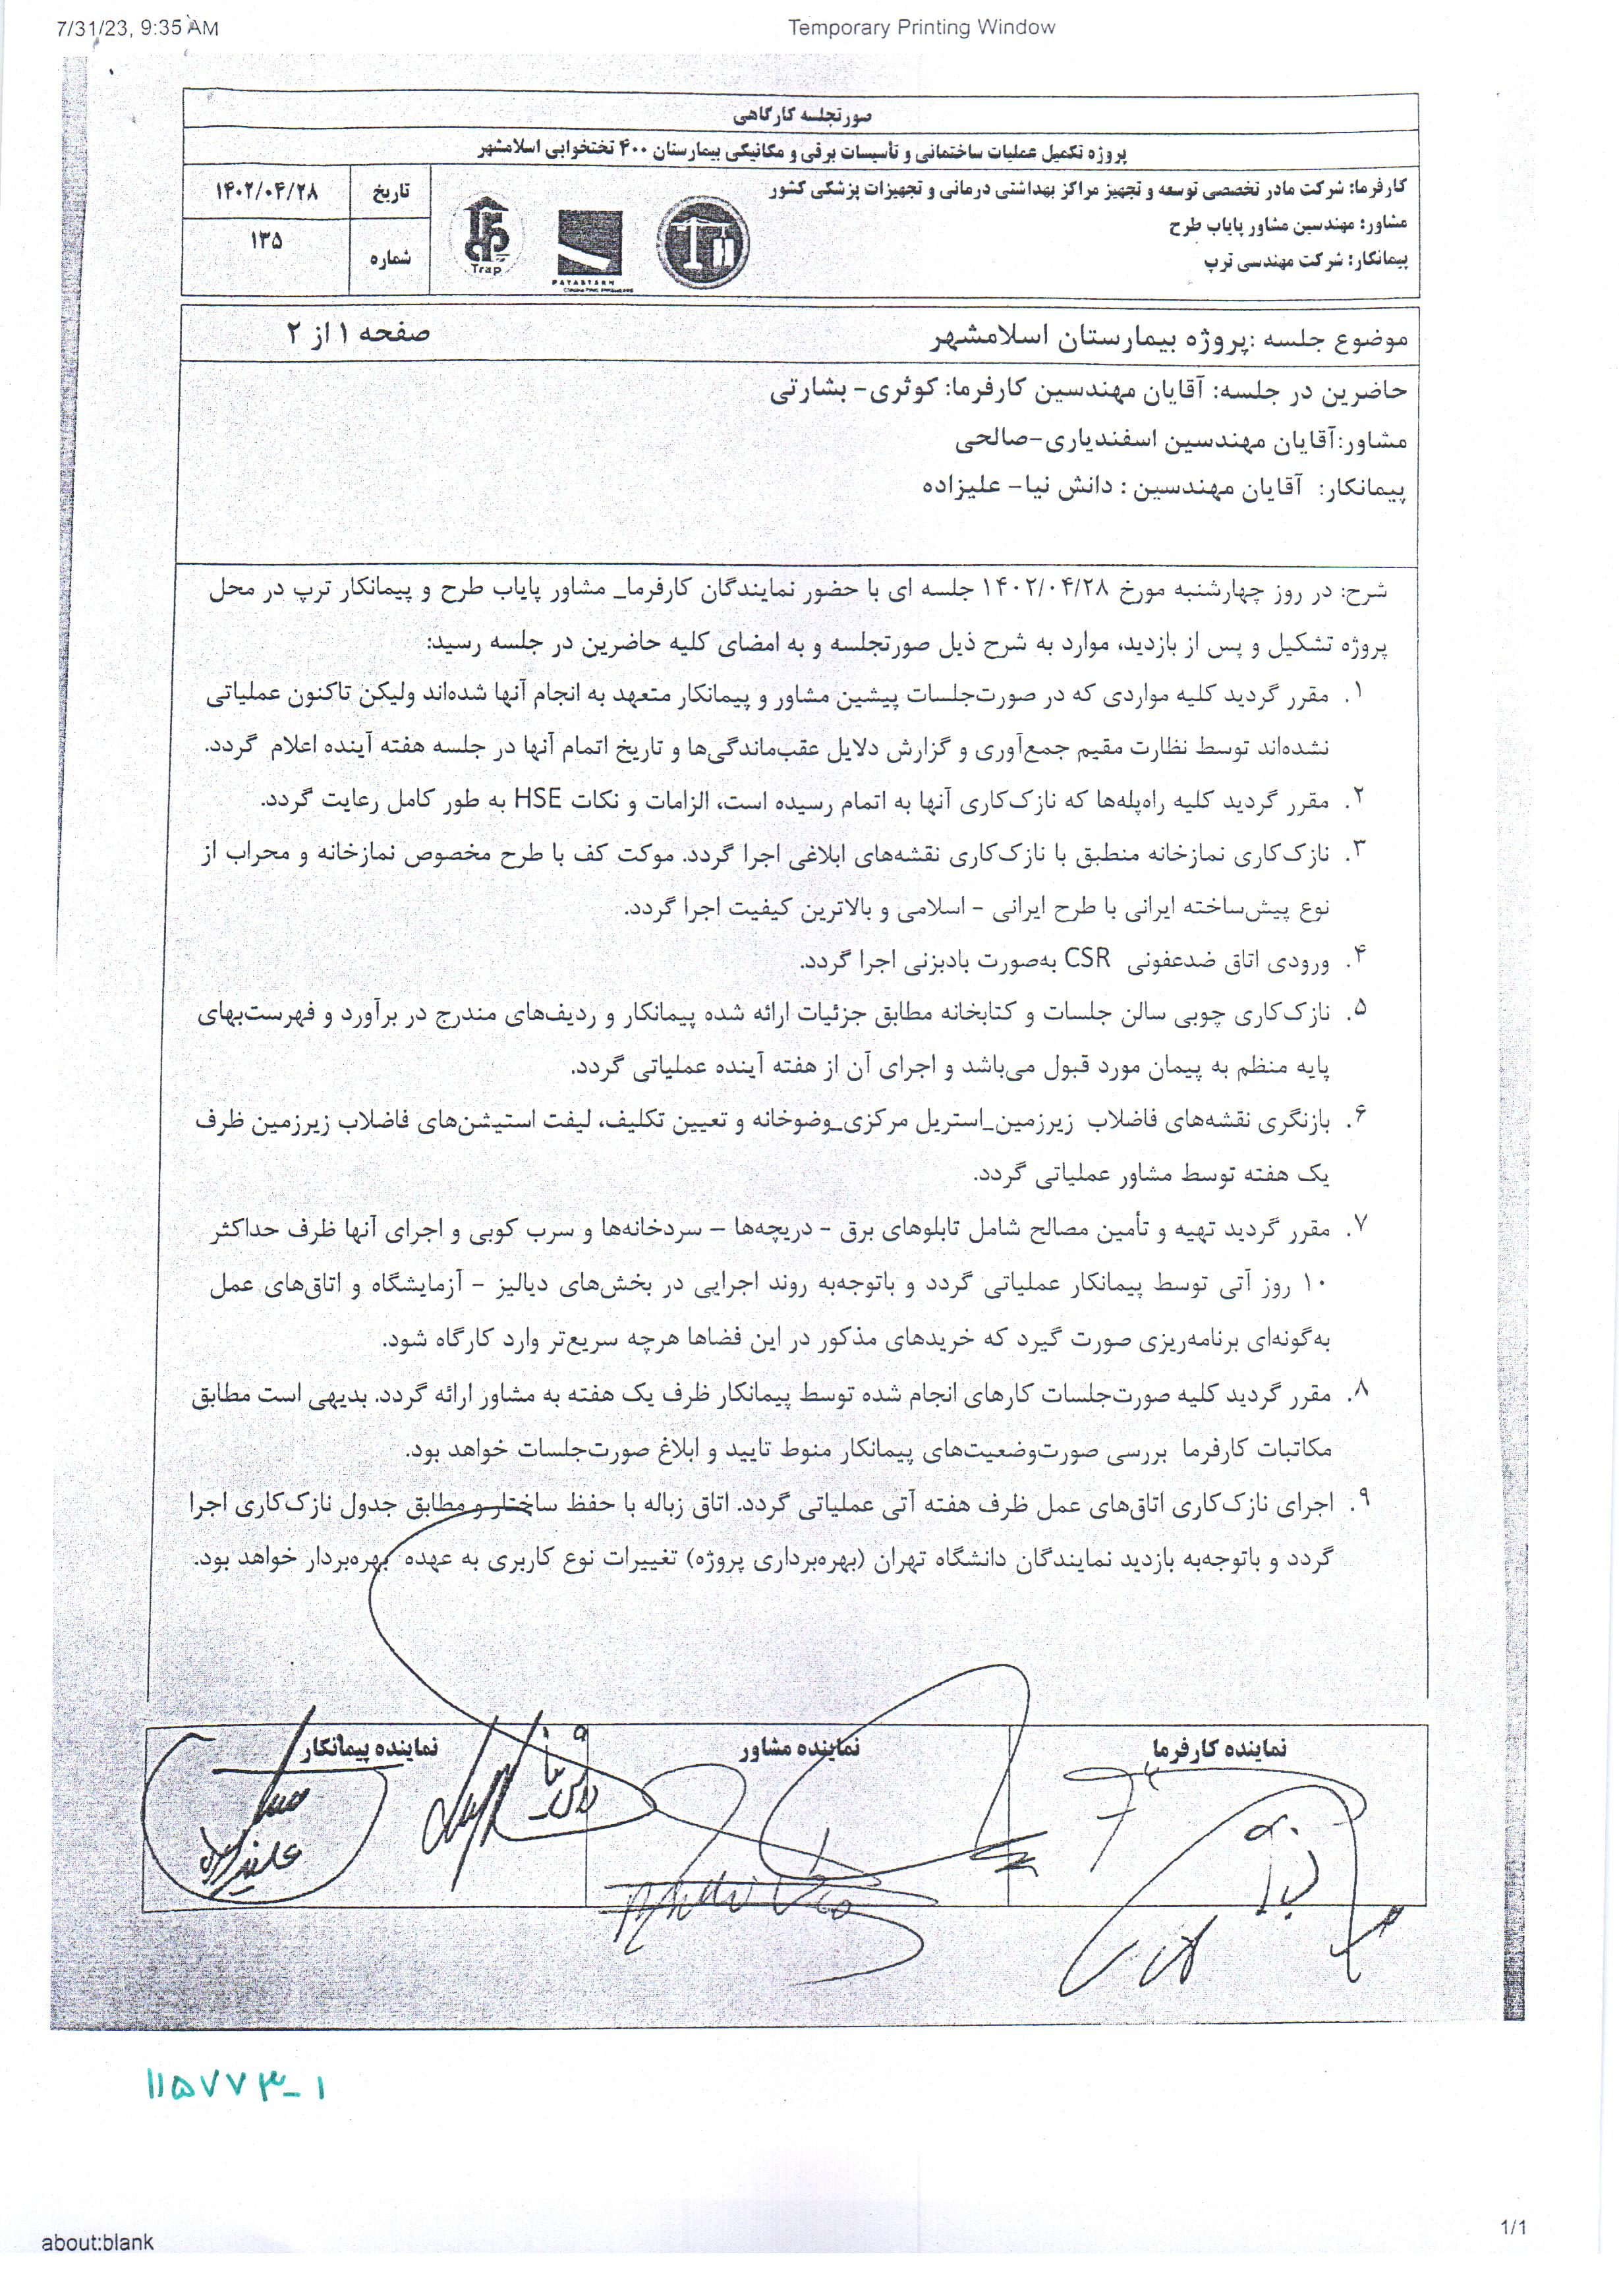 7/31/23, 9:35 AM
Temporary Printing Window
صورتجلسه کارگاهی
پروژه تکمیل عملیات ساختمانی و تأسیسات برقی و مکانیکی بیمارستان ۴۰۰ تختخوابی اسلامشهر
کارفرما: شرکت مادر تخصصی توسعه و تجهیز مراکز بهداشتی درمانی و تجهیزات پزشکی کشور
مشاور: مهندسین مشاور پایاب طرح
پیمانکار: شرکت مهندسی ترپ
Trap
PAYABTARH
تاریخ
۱۴۰۲/۰۴/۲۸
شماره
۱۳۵
موضوع جلسه :پروژه بیمارستان اسلامشهر
صفحه ۱ از ۲
حاضرین در جلسه: آقایان مهندسین کارفرما: کوثری- بشارتی
مشاور:آقایان مهندسین اسفندیاری-صالحی
پیمانکار: آقایان مهندسین : دانش نیا- علیزاده
شرح: در روز چهارشنبه مورخ ۱۴۰۲/۰۴/۲۸ جلسه ای با حضور نمایندگان کارفرما_ مشاور پایاب طرح و پیمانکار ترپ در محل
پروژه تشکیل و پس از بازدید، موارد به شرح ذیل صورتجلسه و به امضای کلیه حاضرین در جلسه رسید:
۱. مقرر گردید کلیه مواردی که در صورت‌جلسات پیشین مشاور و پیمانکار متعهد به انجام آنها شده‌اند ولیکن تاکنون عملیاتی
نشده‌اند توسط نظارت مقیم جمع‌آوری و گزارش دلایل عقب‌ماندگی‌ها و تاریخ اتمام آنها در جلسه هفته آینده اعلام گردد.
۲. مقرر گردید کلیه راه‌پله‌ها که نازک‌کاری آنها به اتمام رسیده است، الزامات و نکات HSE به طور کامل رعایت گردد.
۳. نازک‌کاری نمازخانه منطبق با نازک‌کاری نقشه‌های ابلاغی اجرا گردد. موکت کف با طرح مخصوص نمازخانه و محراب از
نوع پیش‌ساخته ایرانی با طرح ایرانی - اسلامی و بالاترین کیفیت اجرا گردد.
۴. ورودی اتاق ضدعفونی CSR به‌صورت بادبزنی اجرا گردد.
۵. نازک‌کاری چوبی سالن جلسات و کتابخانه مطابق جزئیات ارائه شده پیمانکار و ردیف‌های مندرج در برآورد و فهرست‌بهای
پایه منظم به پیمان مورد قبول می‌باشد و اجرای آن از هفته آینده عملیاتی گردد.
۶. بازنگری نقشه‌های فاضلاب زیرزمین_استریل مرکزی_وضوخانه و تعیین تکلیف، لیفت استیشن‌های فاضلاب زیرزمین ظرف
یک هفته توسط مشاور عملیاتی گردد.
۷. مقرر گردید تهیه و تأمین مصالح شامل تابلوهای برق - دریچه‌ها – سردخانه‌ها و سرب کوبی و اجرای آنها ظرف حداکثر
۱۰ روز آتی توسط پیمانکار عملیاتی گردد و باتوجه‌به روند اجرایی در بخش‌های دیالیز - آزمایشگاه و اتاق‌های عمل
به‌گونه‌ای برنامه‌ریزی صورت گیرد که خریدهای مذکور در این فضاها هرچه سریع‌تر وارد کارگاه شود.
۸. مقرر گردید کلیه صورت‌جلسات کارهای انجام شده توسط پیمانکار ظرف یک هفته به مشاور ارائه گردد. بدیهی است مطابق
مکاتبات کارفرما بررسی صورت‌وضعیت‌های پیمانکار منوط تایید و ابلاغ صورت‌جلسات خواهد بود.
۹. اجرای نازک‌کاری اتاق‌های عمل ظرف هفته آتی عملیاتی گردد. اتاق زباله با حفظ ساختار و مطابق جدول نازک‌کاری اجرا
گردد و باتوجه‌به بازدید نمایندگان دانشگاه تهران (بهره‌برداری پروژه) تغییرات نوع کاربری به عهده بهره‌بردار خواهد بود.
نماینده کارفرما
نماینده مشاور
نماینده پیمانکار
دانش نیا
علیزاده
۱۱۵۷۷۳-۱
about:blank
1/1